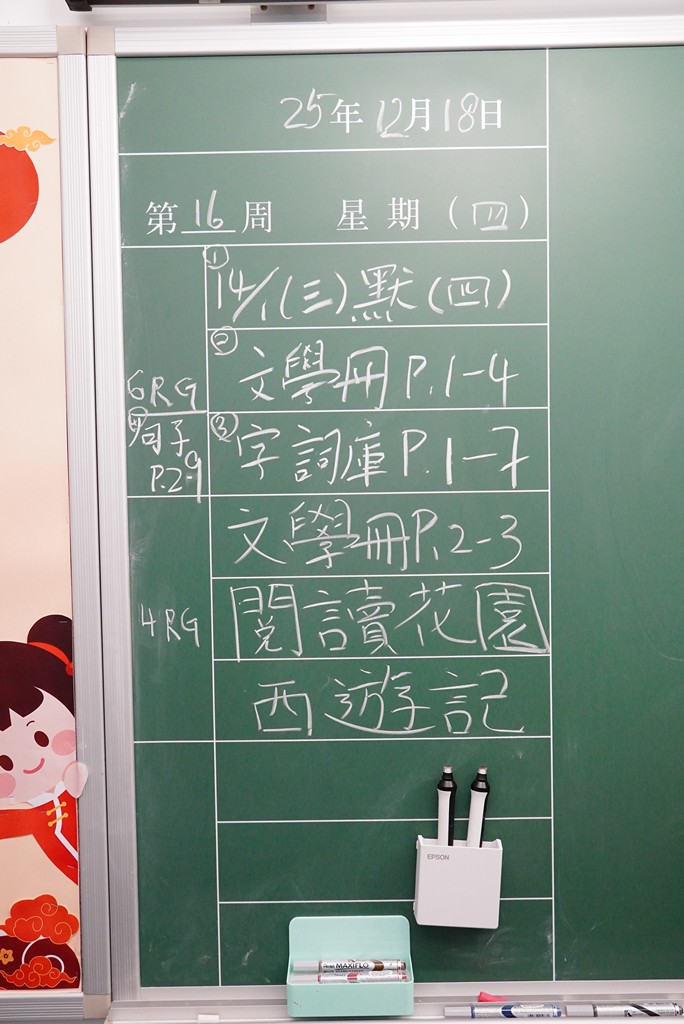 25年12月18日
第16周 星期(四)
① 14/1(三)默(四)
② 文學冊 P.1-4
6RG
③ 字詞庫 P.1-7
④ 句子
P.2-9
文學冊P.2-3
4RG
閱讀花園
西遊記
EPSON
MAXIFLO